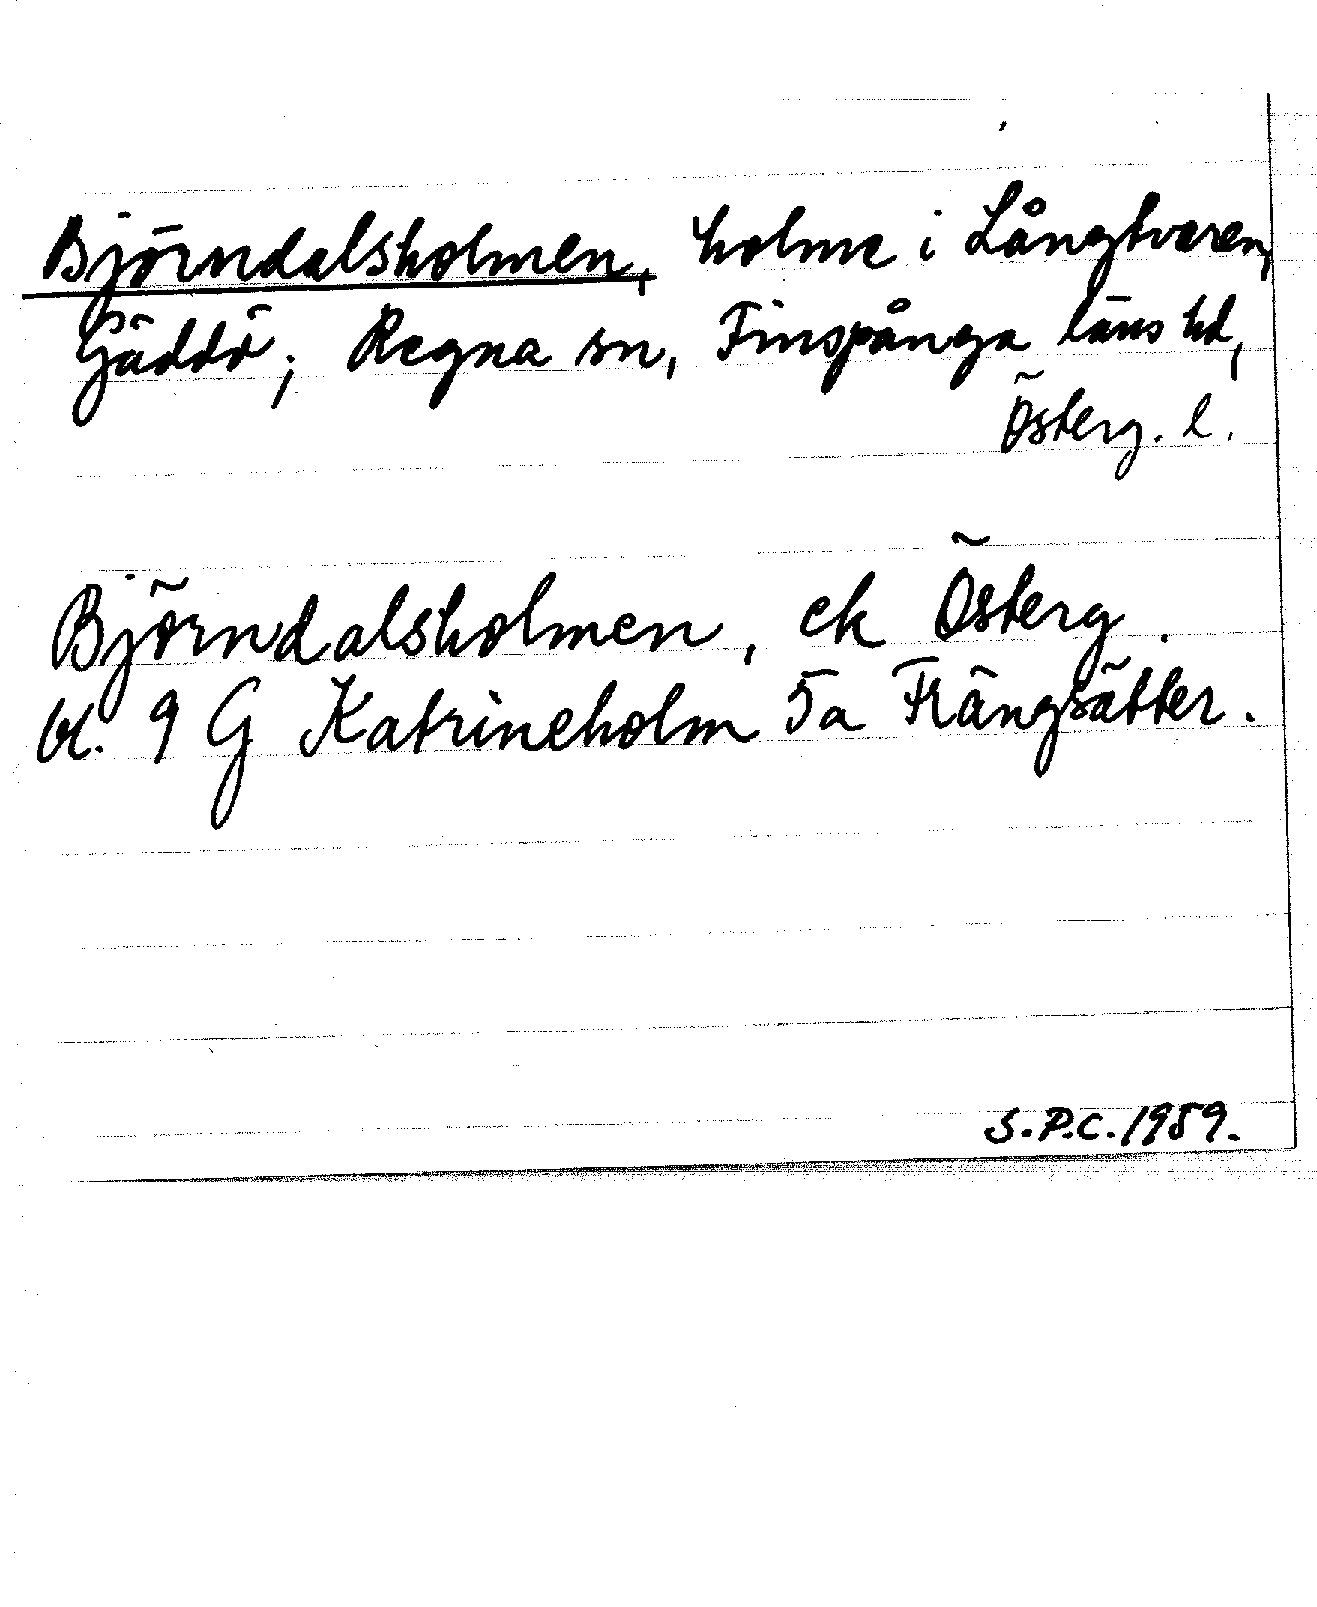 Björndalsholmen, holme i Långtveren,
Gäddö; Regna sn, Finspånga läns hd,
Österg. l.
Björndalsholmen, ek Österg.
bl. 9 G Katrineholm 5a Frängsätter.
S.P.C. 1989.